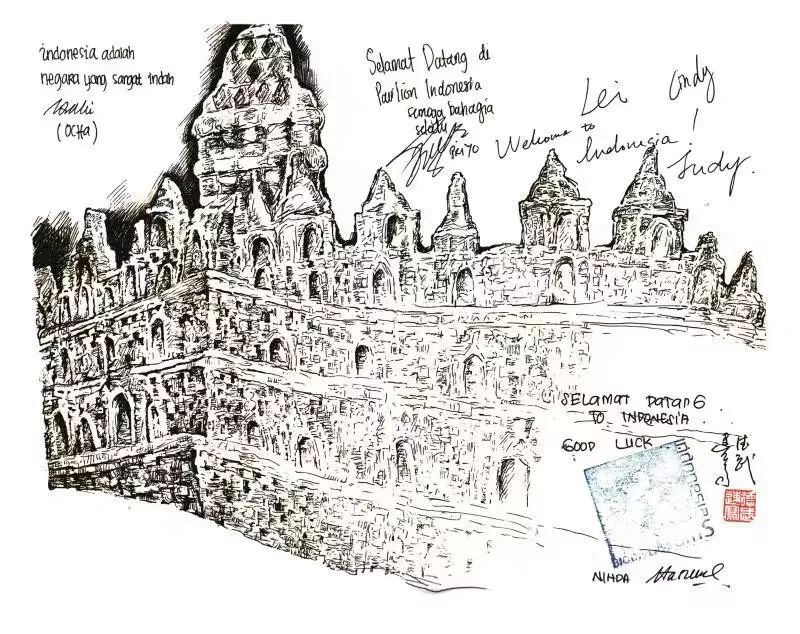 indonesia adalah
negara yang sangat indah
(OCHA)
Selamat Datang di
Pavilion Indonesia
semoga bahagia
selalu
PRIYO
Lei
Cindy
Welcome to
Indonesia!
Judy.
SELAMAT DATANG
TO INDONESIA
GOOD LUCK
NINDA